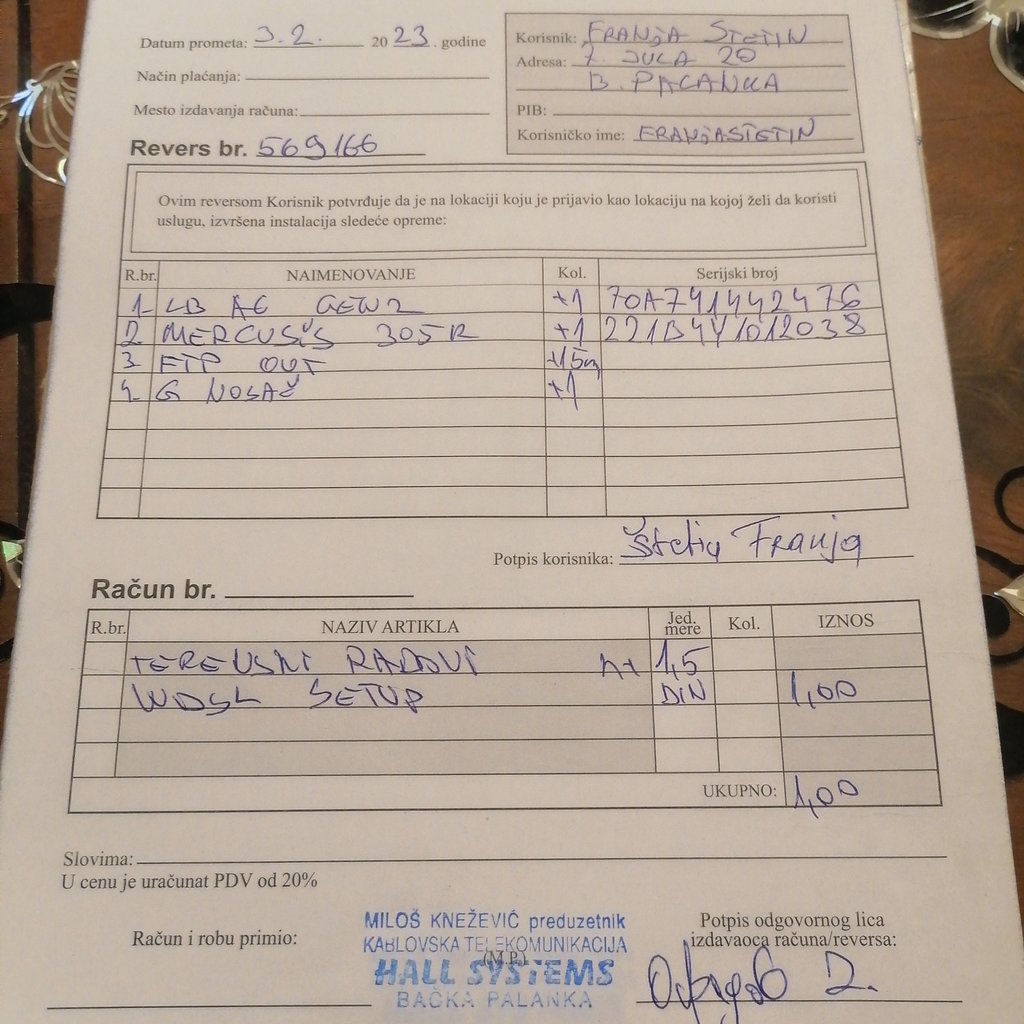 Datum prometa: 3.2. 2023. godine
Način plaćanja:
Mesto izdavanja računa:
Revers br. 569166
Korisnik: FRANJA ŠTETIN
Adresa: 7. JULA 20
B. PALANKA
PIB:
Korisničko ime: FRANJASTETIN
Ovim reversom Korisnik potvrđuje da je na lokaciji koju je prijavio kao lokaciju na kojoj želi da koristi
uslugu, izvršena instalacija sledeće opreme:
R.br. NAIMENOVANJE Kol. Serijski broj
1. LB AC GEN2 +1 70A741442476
2. MERCUSYS 305R +1
3 FTP OUT +15m
4. G NOSAČ +1
Potpis korisnika: Štetin Franja
Račun br.
R.br. NAZIV ARTIKLA Jed. mere Kol. IZNOS
TERENSKI RADOVI 1,5
WDSL SETUP DIN 1,00
UKUPNO: 1,00
Slovima:
U cenu je uračunat PDV od 20%
Račun i robu primio:
MILOŠ KNEŽEVIĆ preduzetnik
KABLOVSKA TELEKOMUNIKACIJA
(M.P.)
HALL SYSTEMS
BAČKA PALANKA
Potpis odgovornog lica
izdavaoca računa/reversa: